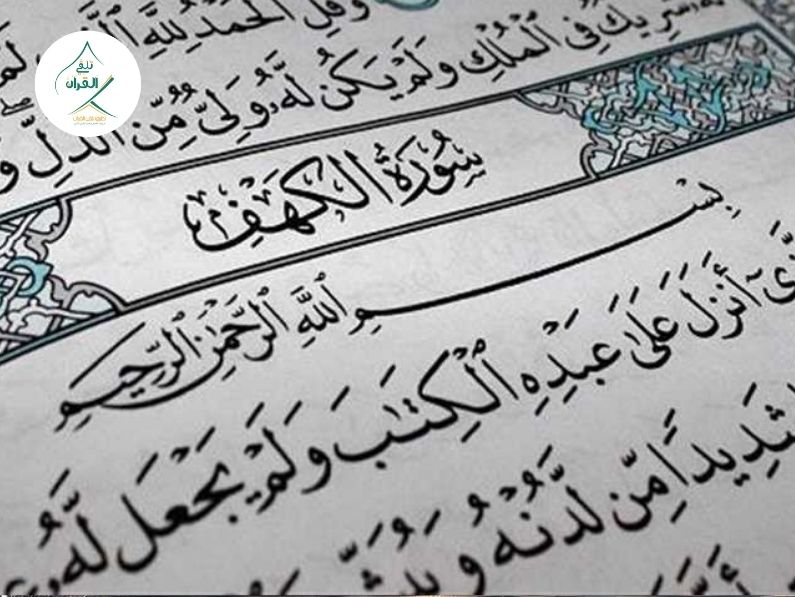 وَقُلِ ٱلْحَمْدُ لِلَّهِ
شَرِيكٌ فِى ٱلْمُلْكِ وَلَمْ يَكُن لَّهُۥ وَلِىٌّ مِّنَ ٱلذُّلِّ
تلقي
القرآن
سُورَةُ الكَهْفِ
بِسْمِ ٱللَّهِ ٱلرَّحْمَٰنِ ٱلرَّحِيمِ
أَنزَلَ عَلَىٰ عَبْدِهِ ٱلْكِتَٰبَ وَلَمْ يَجْعَل لَّهُۥ
شَدِيدًا مِّن لَّدُنْهُ